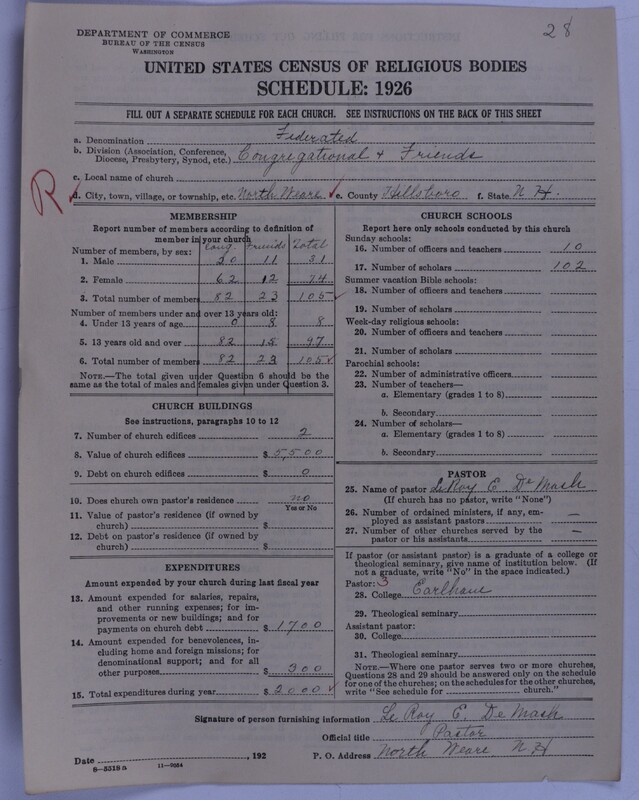 28
DEPARTMENT OF COMMERCE
BUREAU OF THE CENSUS
WASHINGTON
UNITED STATES CENSUS OF RELIGIOUS BODIES
SCHEDULE: 1926
FILL OUT A SEPARATE SCHEDULE FOR EACH CHURCH. SEE INSTRUCTIONS ON THE BACK OF THIS SHEET
a. Denomination Federated
b. Division (Association, Conference, Diocese, Presbytery, Synod, etc.) Congregational + Friends
c. Local name of church
R
d. City, town, village, or township, etc. North Weare e. County Hillsboro f. State N. H.
MEMBERSHIP
Report number of members according to definition of
member in your church
Cong. Friends Total
Number of members, by sex:
1. Male 20 11 31
2. Female 62 12 74
3. Total number of members 82 23 105 ✓
Number of members under and over 13 years old:
4. Under 13 years of age 0 8 8
5. 13 years old and over 82 15 97
6. Total number of members 82 23 105 ✓
NOTE.—The total given under Question 6 should be the
same as the total of males and females given under Question 3.
CHURCH BUILDINGS
See instructions, paragraphs 10 to 12
7. Number of church edifices 2
8. Value of church edifices $ 5,500
9. Debt on church edifices $ 0
10. Does church own pastor's residence no
Yes or No
11. Value of pastor's residence (if owned by
church) $
12. Debt on pastor's residence (if owned by
church) $
EXPENDITURES
Amount expended by your church during last fiscal year
13. Amount expended for salaries, repairs,
and other running expenses; for im-
provements or new buildings; and for
payments on church debt $ 1700
14. Amount expended for benevolences, in-
cluding home and foreign missions; for
denominational support; and for all
other purposes $ 300
15. Total expenditures during year $ 2000 ✓
CHURCH SCHOOLS
Report here only schools conducted by this church
Sunday schools:
16. Number of officers and teachers 10
17. Number of scholars 102
Summer vacation Bible schools:
18. Number of officers and teachers
19. Number of scholars
Week-day religious schools:
20. Number of officers and teachers
21. Number of scholars
Parochial schools:
22. Number of administrative officers
23. Number of teachers—
a. Elementary (grades 1 to 8)
b. Secondary
24. Number of scholars—
a. Elementary (grades 1 to 8)
b. Secondary
PASTOR
25. Name of pastor Le Roy E. De Mash
(If church has no pastor, write "None")
26. Number of ordained ministers, if any, em-
ployed as assistant pastors —
27. Number of other churches served by the
pastor or his assistants —
If pastor (or assistant pastor) is a graduate of a college or
theological seminary, give name of institution below. (If
not a graduate, write "No" in the space indicated.)
Pastor: 3
28. College Earlham
29. Theological seminary
Assistant pastor:
30. College
31. Theological seminary
NOTE.—Where one pastor serves two or more churches,
Questions 28 and 29 should be answered only on the schedule
for one of the churches; on the schedules for the other churches,
write "See schedule for church."
Signature of person furnishing information Le Roy E. De Mash
Official title Pastor
Date , 192 P. O. Address North Weare N. H
8—5518 a 11—9054